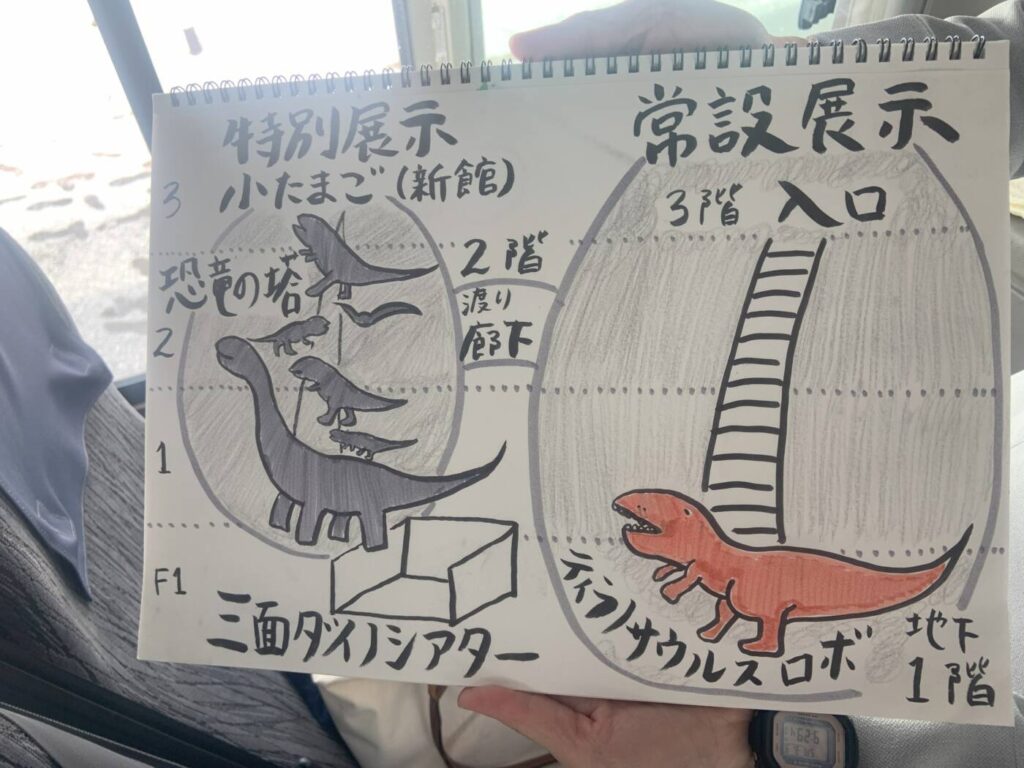 特別展示
小たまご(新館)
3
恐竜の塔
2
1
F1
三面ダイノシアター
2階
渡り
廊下
常設展示
3階 入口
ティラノサウルスロボ
地下
1階